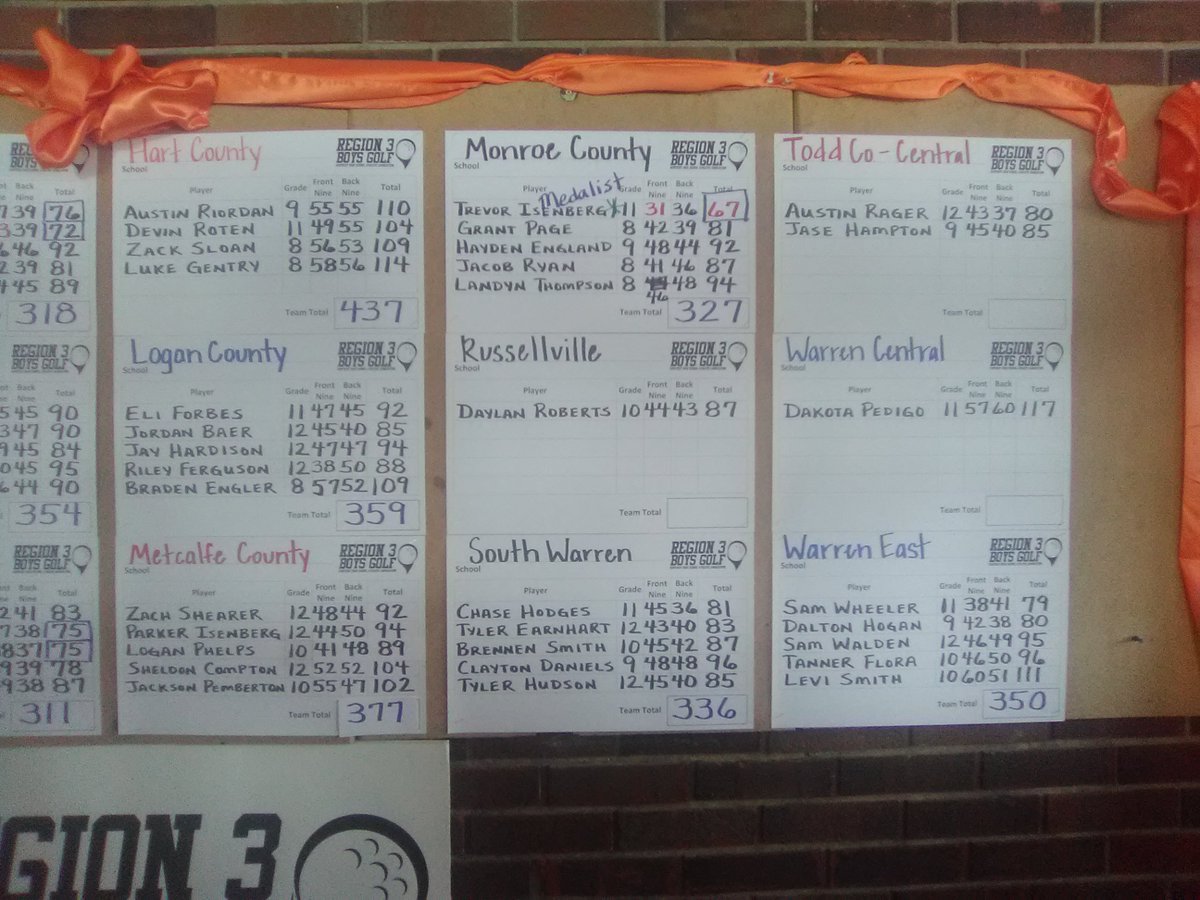 Back
Nine Total
39 76
39 72
46 92
39 81
45 89
318
REGION 3
BOYS GOLF
Back
Nine Total
45 90
47 90
45 84
45 95
44 90
354
REGION 3
BOYS GOLF
Back
Nine Total
41 83
38 75
37 75
39 78
38 87
311
Hart County
School
REGION 3
BOYS GOLF
Player Grade Front Nine Back Nine Total
AUSTIN RIORDAN 9 55 55 110
DEVIN ROTEN 11 49 55 104
ZACK SLOAN 8 56 53 109
LUKE GENTRY 8 58 56 114
Team Total 437
Logan County
School
REGION 3
BOYS GOLF
Player Grade Front Nine Back Nine Total
ELI FORBES 11 47 45 92
JORDAN BAER 12 45 40 85
JAY HARDISON 12 47 47 94
RILEY FERGUSON 12 38 50 88
BRADEN ENGLER 8 57 52 109
Team Total 359
Metcalfe County
School
REGION 3
BOYS GOLF
Player Grade Front Nine Back Nine Total
ZACH SHEARER 12 48 44 92
PARKER ISENBERG 12 44 50 94
LOGAN PHELPS 10 41 48 89
SHELDON COMPTON 12 52 52 104
JACKSON PEMBERTON 10 55 47 102
Team Total 377
Monroe County
School
REGION 3
BOYS GOLF
Player Grade Front Nine Back Nine Total
Medalist
TREVOR ISENBERG 11 31 36 67
GRANT PAGE 8 42 39 81
HAYDEN ENGLAND 9 48 44 92
JACOB RYAN 8 41 46 87
LANDYN THOMPSON 8 46 48 94
Team Total 327
Russellville
School
REGION 3
BOYS GOLF
Player Grade Front Nine Back Nine Total
DAYLAN ROBERTS 10 44 43 87
Team Total
South Warren
School
REGION 3
BOYS GOLF
Player Grade Front Nine Back Nine Total
CHASE HODGES 11 45 36 81
TYLER EARNHART 12 43 40 83
BRENNEN SMITH 10 45 42 87
CLAYTON DANIELS 9 48 48 96
TYLER HUDSON 12 45 40 85
Team Total 336
Todd Co-Central
School
REGION 3
BOYS GOLF
Player Grade Front Nine Back Nine Total
AUSTIN RAGER 12 43 37 80
JASE HAMPTON 9 45 40 85
Team Total
Warren Central
School
REGION 3
BOYS GOLF
Player Grade Front Nine Back Nine Total
DAKOTA PEDIGO 11 57 60 117
Team Total
Warren East
School
REGION 3
BOYS GOLF
Player Grade Front Nine Back Nine Total
SAM WHEELER 11 38 41 79
DALTON HOGAN 9 42 38 80
SAM WALDEN 12 46 49 95
TANNER FLORA 10 46 50 96
LEVI SMITH 10 60 51 111
Team Total 350
EGION 3